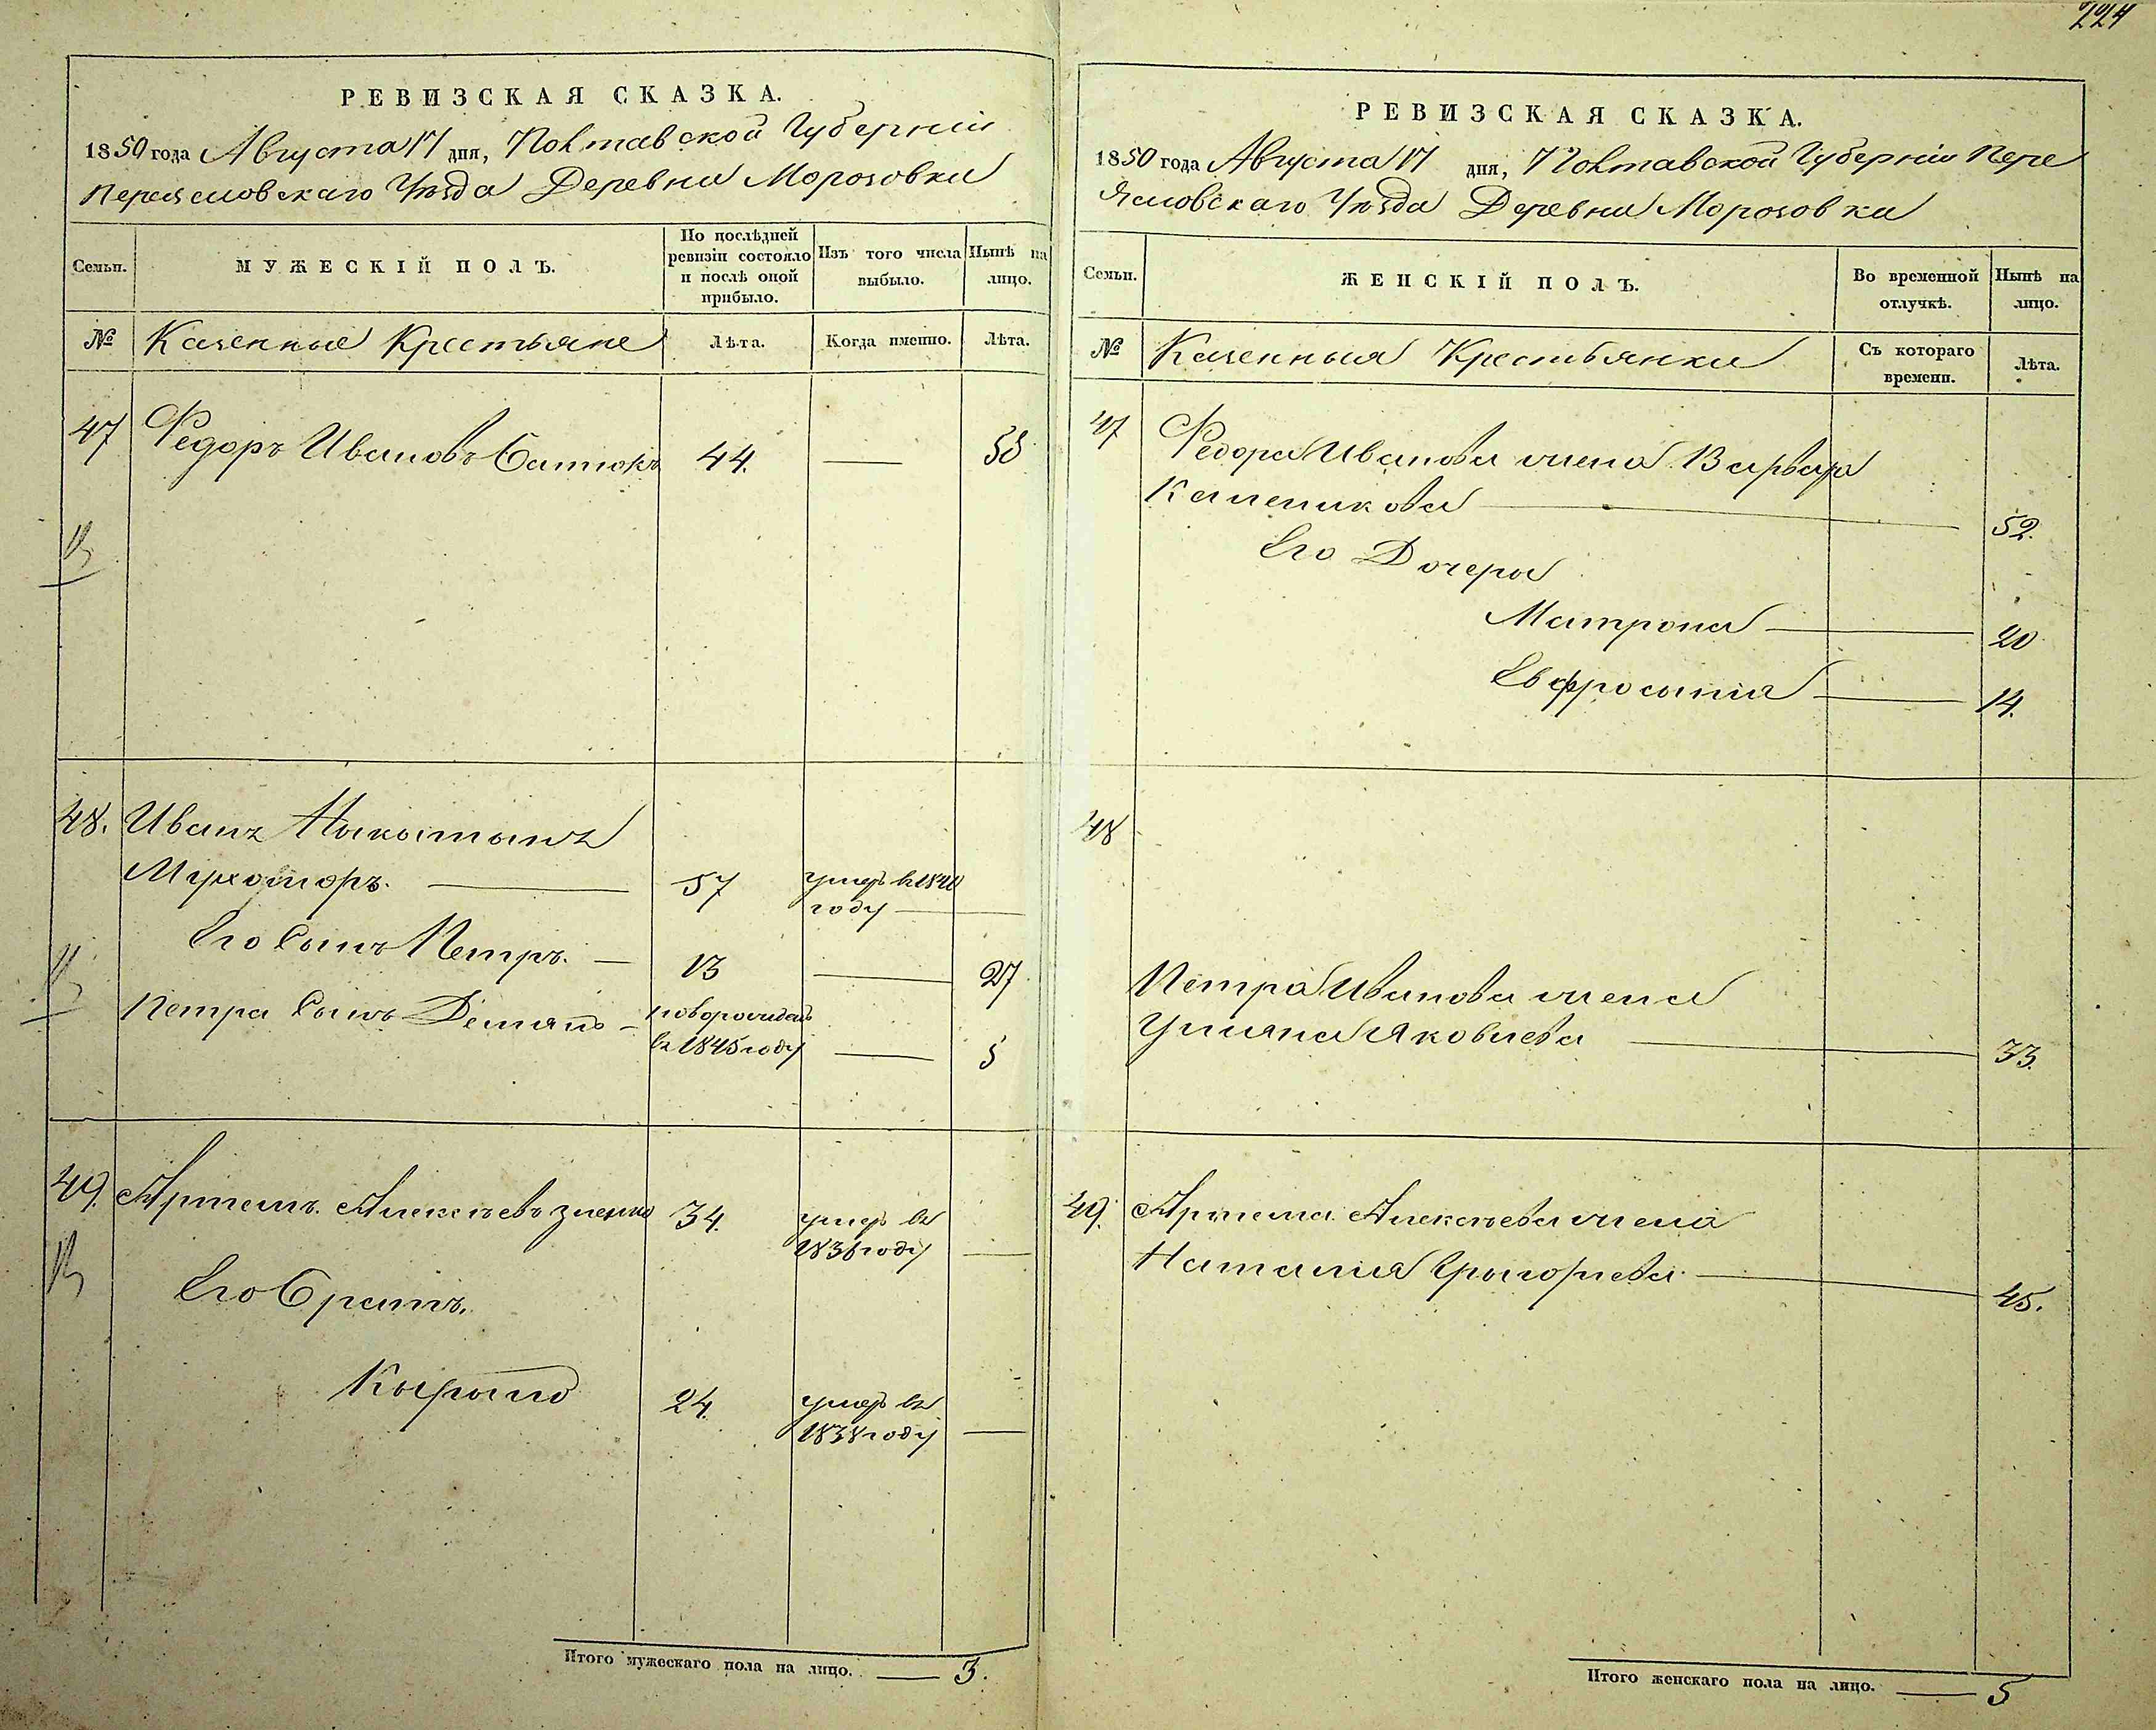 224
РЕВИЗСКАЯ СКАЗКА.
1850 года Августа 17 дня, Полтавской Губерніи
Переяславскаго Уѣзда Деревни Морозовки
Семьи.
МУЖЕСКІЙ ПОЛЪ.
По послѣдней ревизіи состояло и послѣ оной прибыло.
Изъ того числа выбыло.
Нынѣ на лицо.
№ Казенные Крестьяне Лѣта. Когда именно. Лѣта.
47 Федоръ Ивановъ 44. — 58
48. Иванъ Никитинъ
Мухоморъ. — 57 умеръ въ 1840
году —
Его Сынъ Петръ. — 13 — 27
Петра Сынъ Демянъ — новорожденъ
въ 1845 году — 5
49. Артемъ Алексѣевъ 34. умеръ въ
1836 году —
Его Братъ.
Кирило 24. умеръ въ
1838 году —
Итого мужескаго пола на лицо. — 3.
РЕВИЗСКАЯ СКАЗКА.
1850 года Августа 17 дня, Полтавской Губерніи Пере
яславскаго Уѣзда Деревни Морозовки
Семьи.
ЖЕНСКІЙ ПОЛЪ.
Во временной отлучкѣ.
Нынѣ на лицо.
№ Казенныя Крестьянки Съ котораго времени. Лѣта.
47 Федора Иванова жена Варвара
— 52.
Его Дочери
Матрона — 20
Евфросинія — 14.
48
Петра Иванова жена
Уліяна Яковлева — 33.
49. Артема Алексѣева жена
Наталія Григоріева — 45.
Итого женскаго пола на лицо. — 5